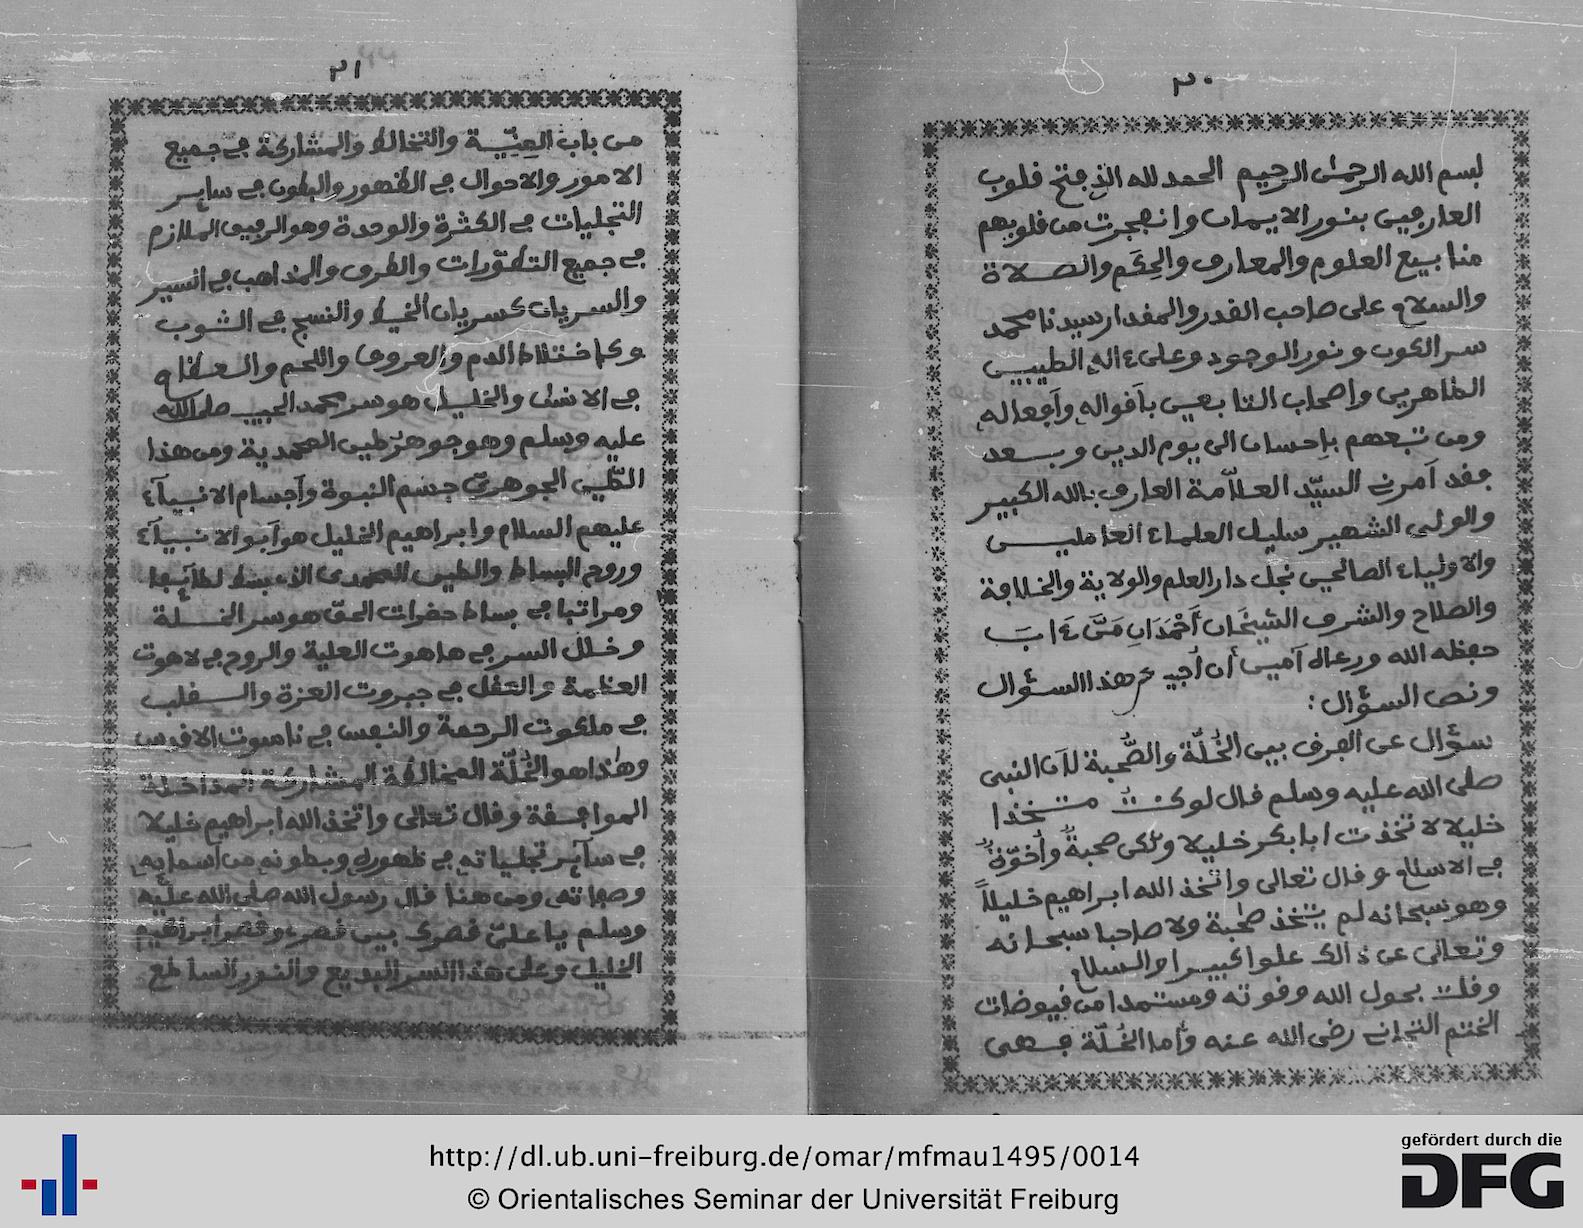 ٢٠
بسم الله الرحمن الرحيم الحمد لله الذي فتح قلوب
العارفين بنور الايمان وانفجرت من قلوبهم
منابيع العلوم والمعارف والحِكَم والصلاة
والسلام على صاحب القدر والمقدار سيدنا محمد
سر الكون ونور الوجود وعلى ءاله الطيبين
الطاهرين واصحاب التابعين بأقواله وأفعاله
ومن تبعهم بإحسان الى يوم الدين وبعد
فقد أمرني السيّد العلّامة العارف بالله الكبير
والولي الشهير سليل العلماء العاملين
والاولياء الصالحين نجل دار العلم والولاية والخلافة
والصلاح والشرف الشيخان أَحْمَدَانِ
حفظه الله ورعاه آمين أن أجيب عن هذا السؤال
ونص السؤال :
سؤال عن الفرق بين الخُلّة والصُّحبة لأن النبي
صلى الله عليه وسلم قال لو كنتُ متخذا
خليلا لاتخذت ابا بكر خليلا ولكن صحبةٌ وأُخوّةٌ
في الاسلام وقال تعالى واتخذ الله ابراهيم خليلاً
وهو سبحانه لم يتخذ صحبة ولا صاحبا سبحانه
وتعالى عن ذالك علوا كبيرا والسلام
وقلت بحول الله وقوته ومستمدا من فيوضات
الختم التجاني رضي الله عنه وأما الخُلّة فهي
٢١
من باب العِنِيّة والتخالل والمشاركة في جميع
الامور والاحوال في الظهور والبطون في سائر
التجليات في الكثرة والوحدة وهو الرفيق الملازم
في جميع التطوّرات والطرق والمذاهب في السير
والسريان كسريان الخيط والنسج في الثوب
وكاختلاط الدم والعروق واللحم والعظام
في الانسان والخليل هو سر محمد الحبيب صلى الله
عليه وسلم وهو جوهر طين المحمدية ومن هذا
الطين الجوهري جسم النبوة وأجسام الانبياء
عليهم السلام وابراهيم الخليل هو أبو الانبياء
وروح البساط والطين المحمدي الذي بسط لطائفها
ومراتبها في بساط حضرات الحق هو سر الخلة
وخلل السر في هاهوت العلية والروح في لاهوت
العظمة والعقل في جبروت العزة والقلب
في ملكوت الرحمة والنفس في ناسوت الاقدس
وهذا هو الخُلّة المخاللة المشاركة المداخلة
الموافقة وقال تعالى واتخذ الله ابراهيم خليلا
في سائر تجلياته في ظهوره وبطونه من أسمائه
وصفاته ومن هنا قال رسول الله صلى الله عليه
وسلم يا علي قصرك بين قصري وقصر ابراهيم
الخليل وعلى هذا السر البديع والنور الساطع
http://dl.ub.uni-freiburg.de/omar/mfmau1495/0014
© Orientalisches Seminar der Universität Freiburg
gefördert durch die
DFG